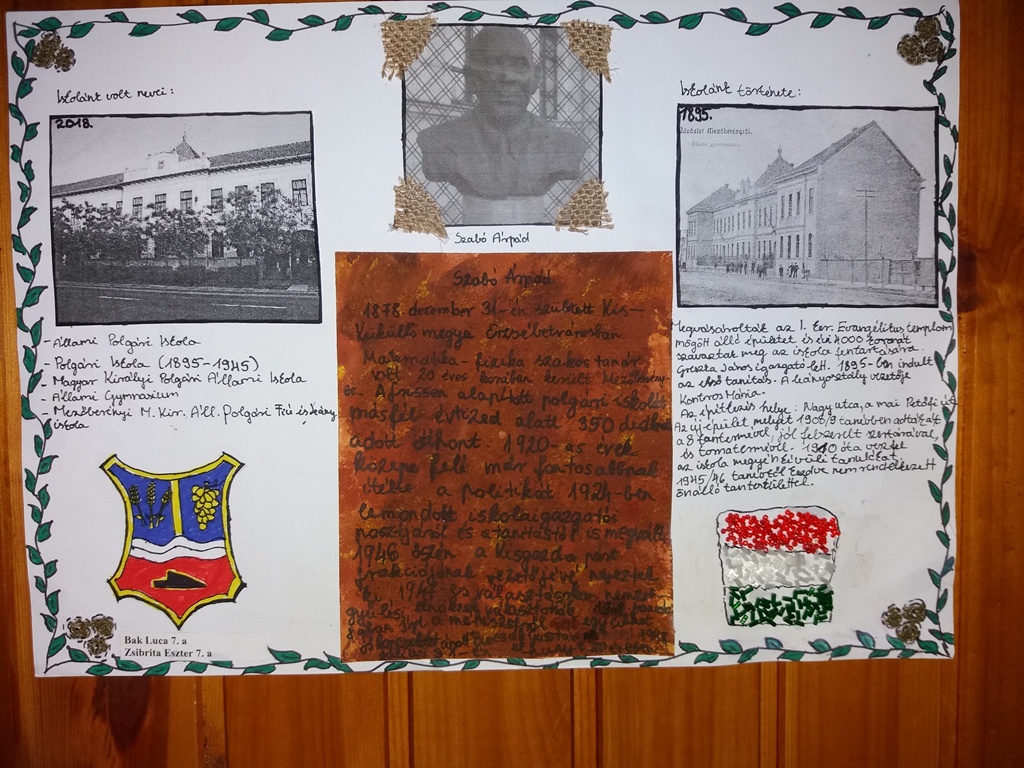 Iskolánk volt nevei:
2018.
- Állami Polgári Iskola
- Polgári Iskola (1895-1945)
- Magyar Királyi Polgári Állami Iskola
- Állami Gymnasium
- Mezőberényi M. Kir. Áll. Polgári Fiú és leány
iskola
Bak Luca 7. a
Zsibrita Eszter 7. a
Szabó Árpád
Szabó Árpád
1878. december 31-én született Kis-
Küküllő megyei Erzsébetvárosban.
Matematika-fizika szakos tanár
volt. 20 éves korában került Mezőberény-
be. A frissen alapított polgári iskolát
másfél évtized alatt 350 diákra
adott otthont. 1920-as évek
közepe felé már fontosabbnak
ítélte a politikát 1924-ben
lemondott iskolaigazgatói
posztjáról és a tanítástól is megvált.
1946 őszén a kisgazda párt
frakciójának vezetőjévé nevezték
ki. 1947-es választásokon nemzet
gyűlési elnöknek választották
Iskolánk története:
1895.
Üdvözlet Mezőberényről.
Állami gymnasium.
Megvásárolták az I. Ker. Evangélikus templom
mögött álló épületet és évi 4000 koronát
szavaztak meg az iskola fentartására
Greszta János igazgató lett. 1895-ben indult
az első tanítás. A leányosztály vezetője
Kontros Mária.
Az építkezés helye: Nagy utca, a mai Petőfi út
Az új épület melyet 1908/9 tanévben adták át
a 8 tantermével, jól felszerelt szertárával,
és tornatermével. 1910 óta vezette
az iskola megyén kívüli tanulókat.
1945/46 tanévtől kezdve nem rendelkezett
önálló tantestülettel.